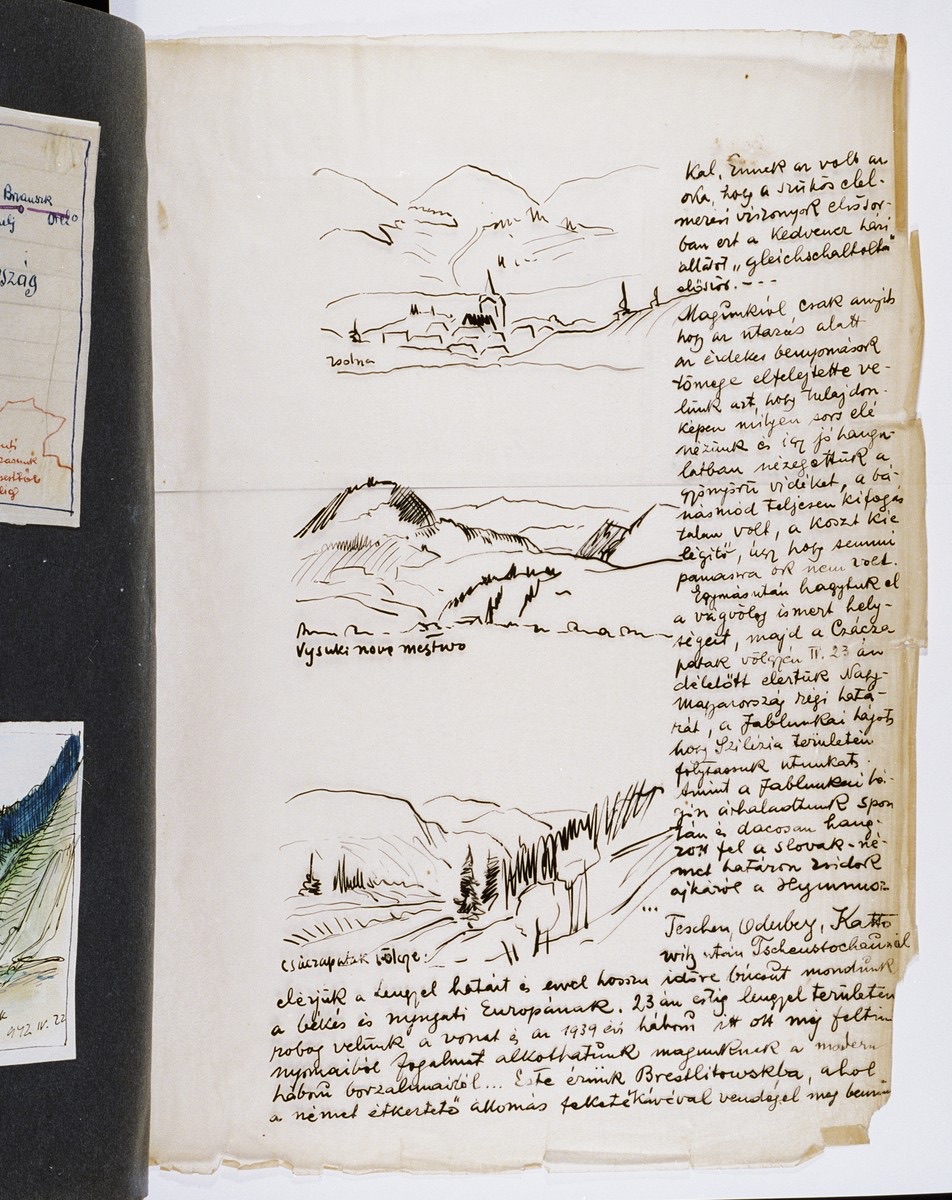 Brianszk
Orel
szág
942 IV. 22
kal. Ennek az volt az
oka, hogy a szűkös élel-
mezési viszonyok elsősor-
ban ezt a kedvencz házi
állatot „gleichschaltolta"
először. - - -
Magunkról csak annyit
hogy az utazás alatt
az érdekes benyomások
tömege elfelejtette ve-
lünk azt, hogy tulajdon-
képen milyen sors elé
nézünk és így jó hangu-
latban nézegettük a
gyönyörű vidéket, a bá-
násmód teljesen kifogás
talan volt, a koszt kie
légitő, úgy hogy semmi
panaszra ok nem volt.
Egymásután hagytuk el
a vágvölgy ismert hely-
ségeit, majd a Czácza
patak völgyén IV. 23 án
délelőtt elértük Nagy-
magyarország régi hatá-
rát, a Jablunkai hágót
hogy Szilézia területén
folytassuk utunkat.
Amint a Jablunkai há-
gón áthaladtunk spon
tán és dacosan hang-
zott fel a slovak-né-
met határon zsidók
ajkáról a Hymnusz
...
Teschen, Oderberg, Katto
witz után Tschenstochaunál
elérjük a Lengyel határt és ezzel hosszu időre búcsút mondunk
a békés és nyugati Európának. 23 án estig lengyel területen
robog velünk a vonat és az 1939 évi háború itt ott még feltűnő
nyomaiból fogalmat alkothatunk magunknak a modern
háború borzalmairól... Este érünk Brestlitowskba, ahol
a német étkeztető állomás feketekávéval vendégel meg benn
zsolna
Vysuki nove mesztwo
csáczapatak völgye.